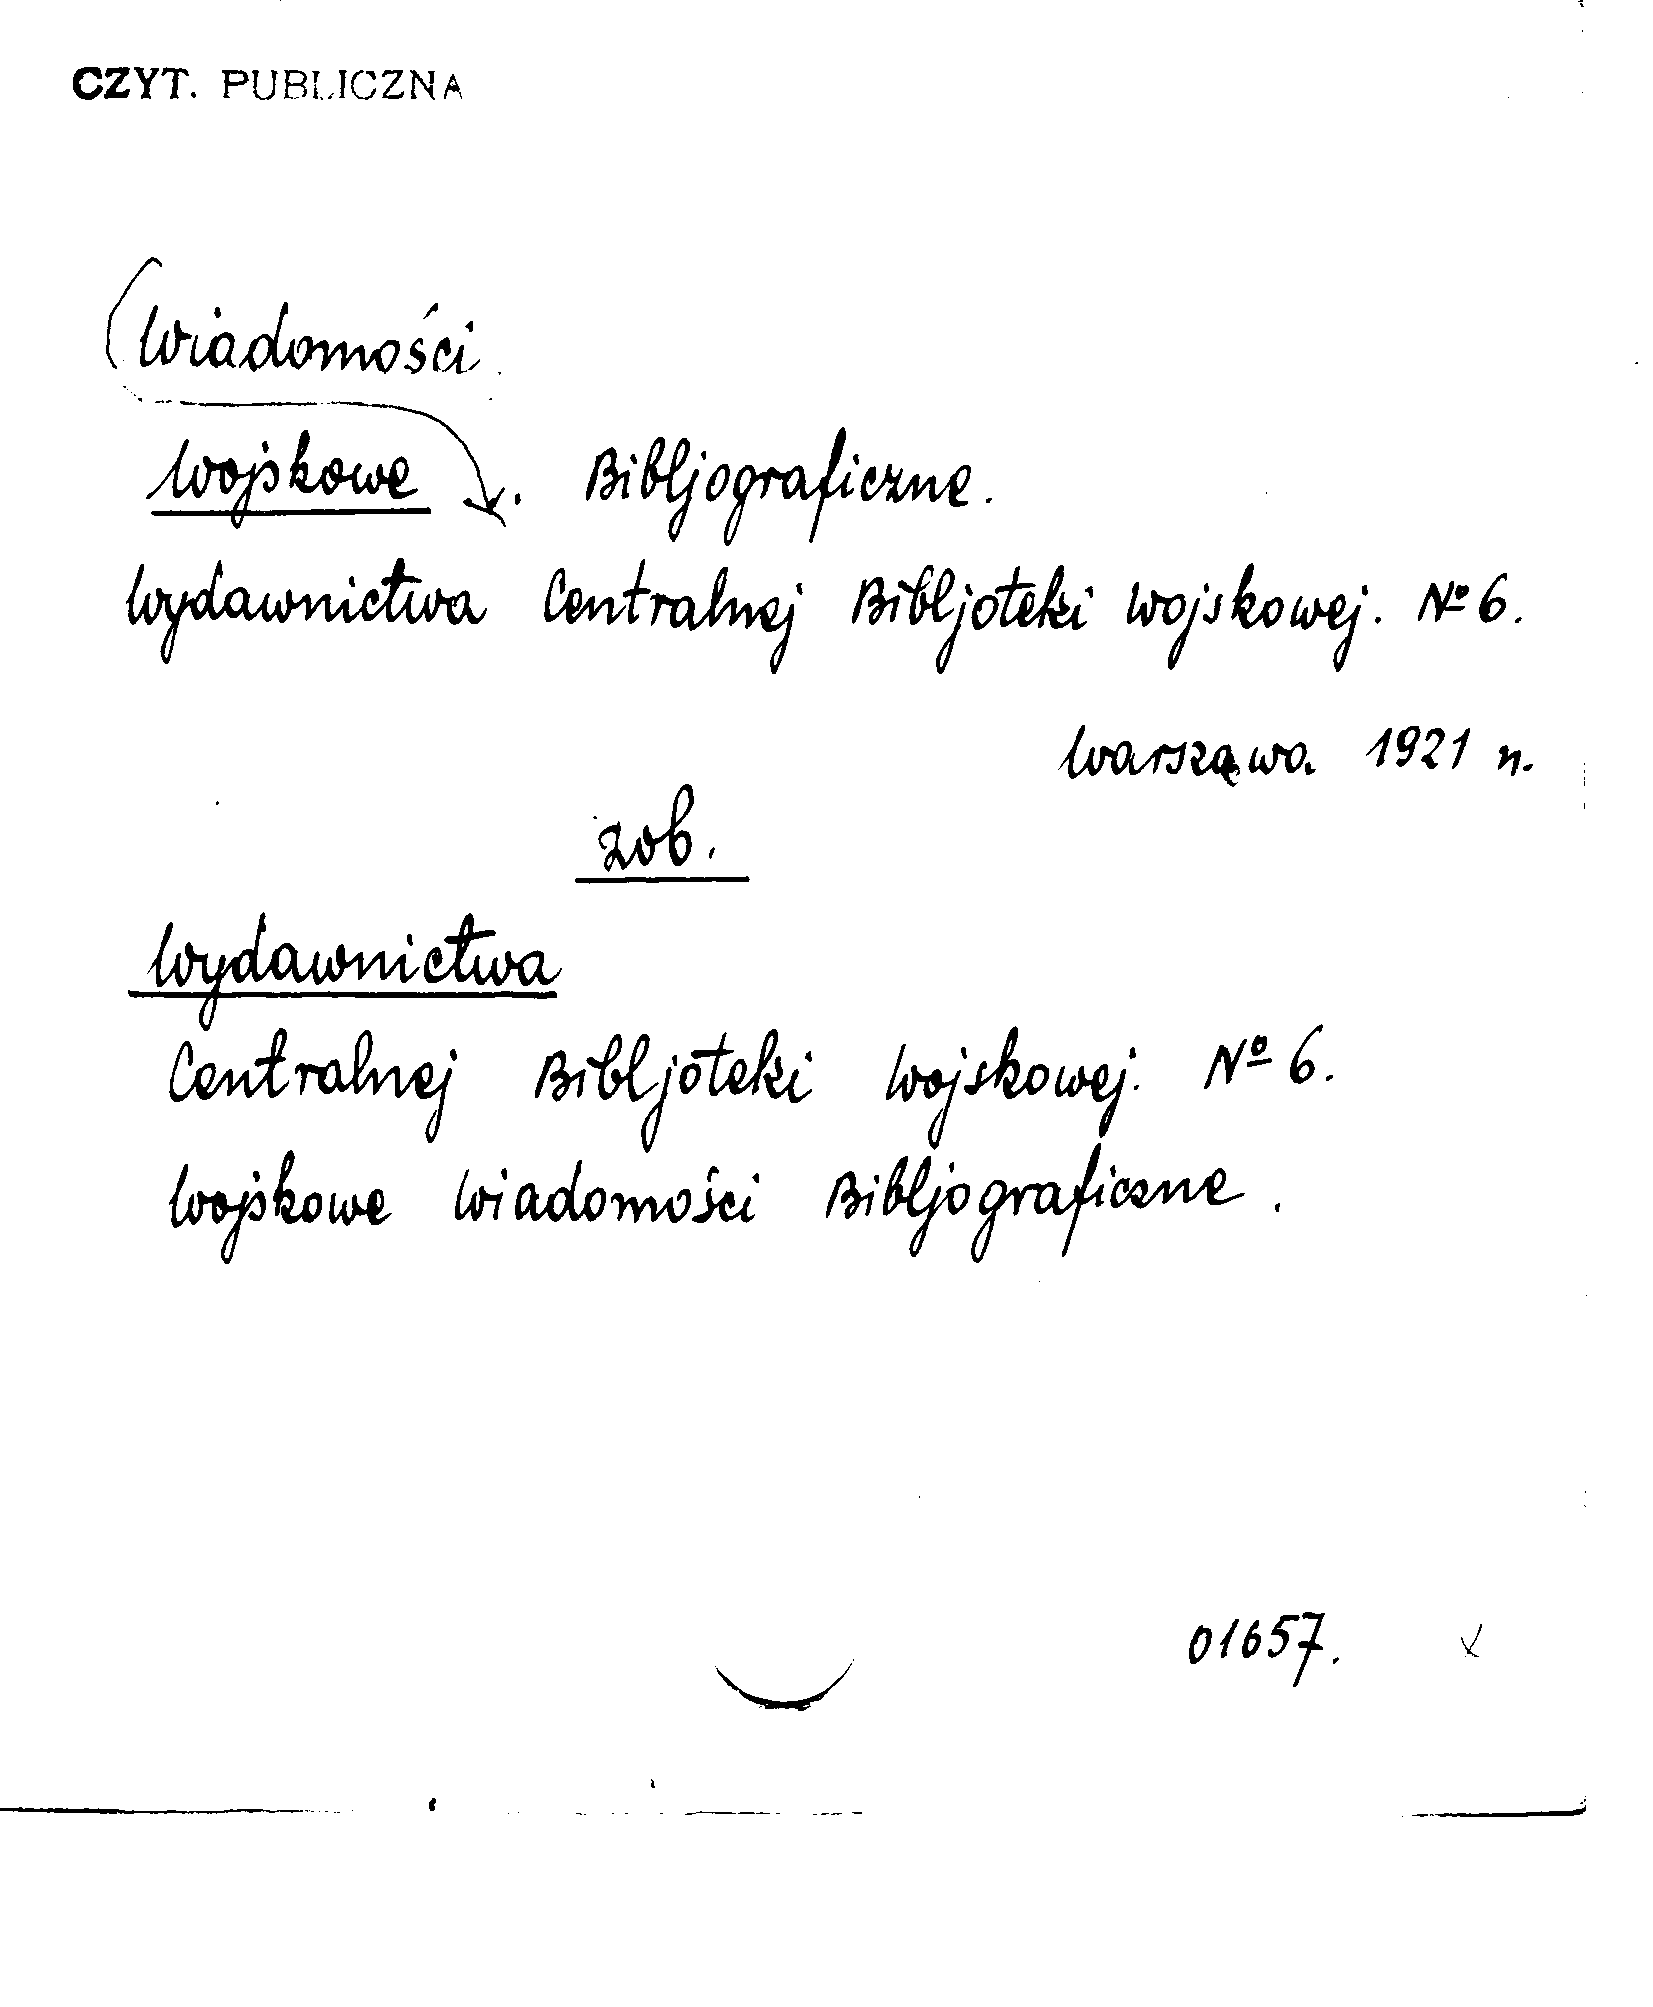 CZYT. PUBLICZNA
Wiadomości
Wojskowe . Bibljograficzne.
Wydawnictwa Centralnej Bibljoteki Wojskowej. Nº 6.
Warszawa 1921 r.
zob.
Wydawnictwa
Centralnej Bibljoteki Wojskowej. Nº 6.
Wojskowe Wiadomości Bibljograficzne.
01657.